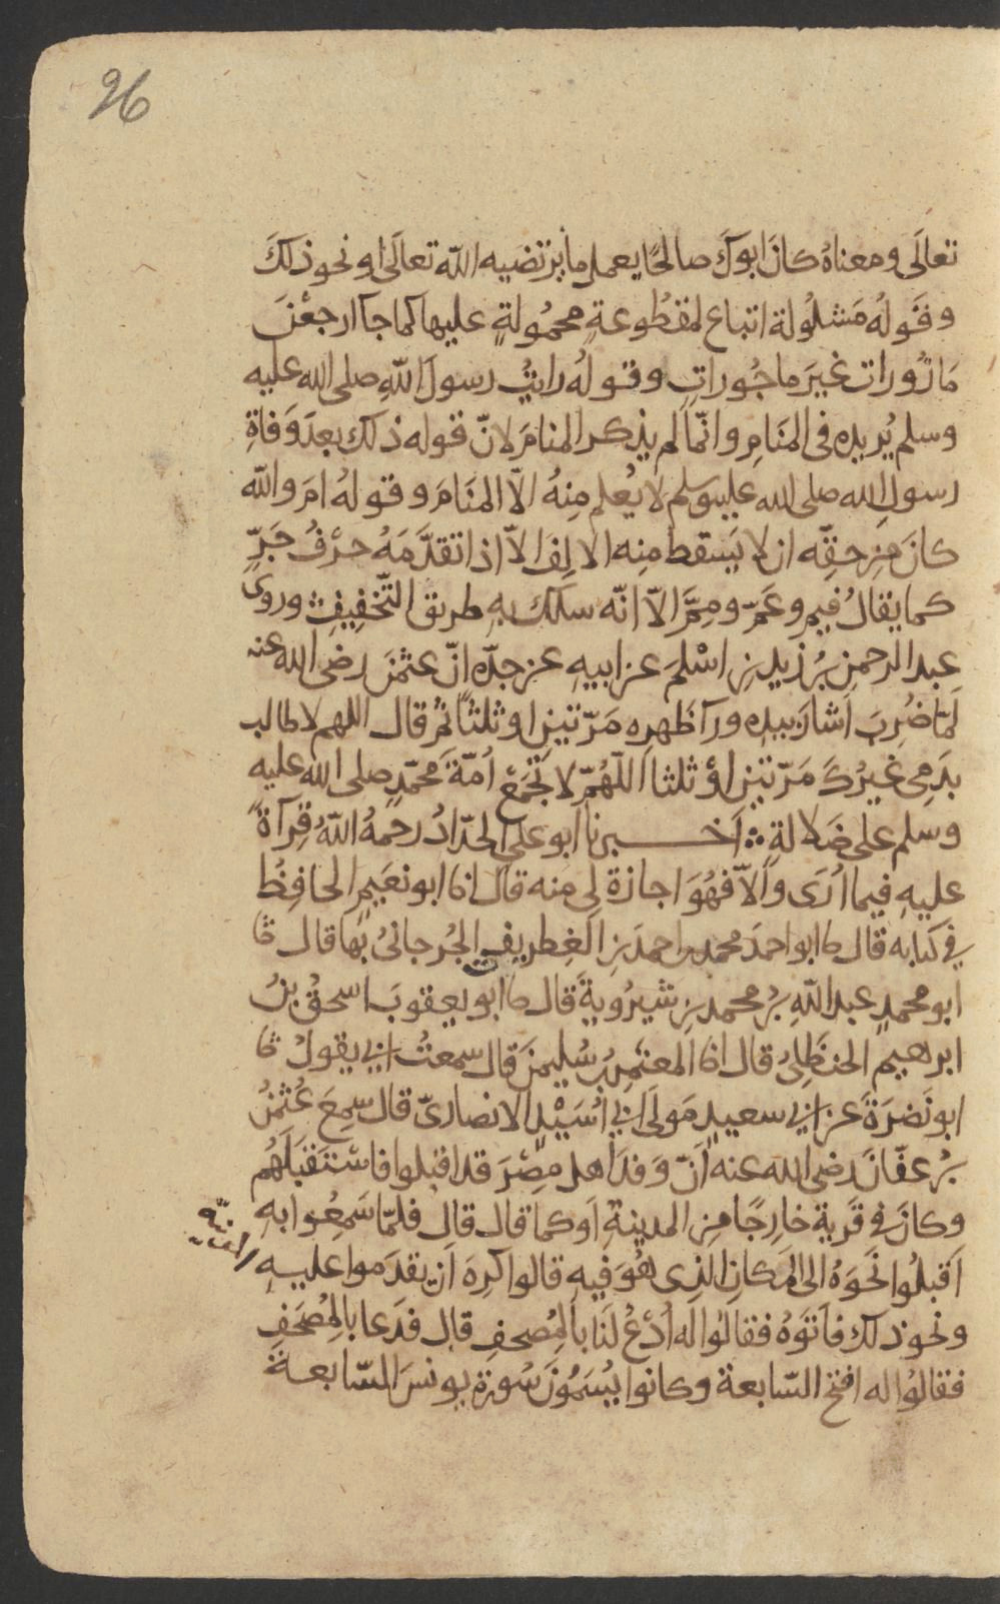 96
تعالَى ومعناهُ كانَ ابوكَ صالحًا يعمل ما يرتضيه اللّه تعالَى او نحو ذلكَ
وقَولُه مَشلُولة اتباع لمقطُوعةٍ محمُولةٍ عليها كما جآ ارجعْنَ
مَازُوراتٍ غيرَ ماجُوراتٍ وقولُه رايتُ رسولَ اللّهِ صلى الله عليه
وسلم يُريد به فى المنَامِ وانّما لم يذكر المنامَ لانّ قوله ذلك بعدَ وَفاةِ
رسولِ الله صلى الله عليه وسلم لا يُعلم مِنهُ الّا المنَامَ وقولهُ امَ واللّه
كانَ مِن حقِّه ان لا يَسقط منِه الالِف الاّ اذا تقدَّمَهُ حرْفُ جَرٍّ
كما يقالُ فيم وعَمّ ومِمَّ الاّ انّه سَلك بهِ طريق التّخفِيفِ وروى
عبد الرحمنِ بنُ زَيد بنِ اسْلمَ عن ابيهِ عن جدّه انّ عثمنَ رضى الله عنه
لمّا ضُرِبَ اَشارَ بيدِه ورآ ظَهرِه مَرّتينِ او ثلثًا ثم قال اللهم لا طالب
بدَمِى غيرُكَ مَرّتينِ اوْ ثلثا اللّهُمّ لا تجمَعْ اُمّةَ محمّدٍ صلى الله عليه
وسلم على ضَلالةٍ اَخــبرنا ابو على الحدّادُ رحمهُ اللّهُ قِرآةً
عليهِ فيما اُرَى والاّ فهُوَ اجازة لى منه قال انا ابو نعَيمٍ الحافِظُ
فى كتابه قال نا ابو احمدَ محمد بن احمدَ بنِ الغِطريفِ الجُرجانىُ بها قال نا
ابو محمدٍ عبد اللّهِ بنُ محمد بنِ شيرُويةَ قال نا ابو يعقوبَ اسحقُ بنُ
ابرهيم الحنظَلِىُ قال انا المعتمِرُ بنُ سُليمنَ قال سمعتُ ابى يقولُ نا
ابو نَضرَةَ عن ابى سعيدٍ مَولَى ابى اُسَيْدٍ الانصارىّ قال سمِعَ عُثمنُ
بنُ عفّانَ رضى الله عنه اَنّ وَفدَ اَهل مِصْرَ قد اقبلوا فاسْتقبَلَهُم
وكانَ فى قَرية خارِجًا مِن المدينةِ اَو كما قال قال فلمّا سَمِعُوا بهِ
اَقبلُوا نَحوَهُ الى المكانِ الذِى هُوَ فيهِ قالوا كرِهَ اَن يقدَموا عليهِ
ونحو ذلك فاَتَوهُ فقالوا له اُدْعُ لَنا بالمُصحفِ قال فدَعا بالمُصْحَفِ
فقالُوا له افتح السّابعة وكانوا يُسَمُّونَ سُورةَ يونسَ السّابعةَ